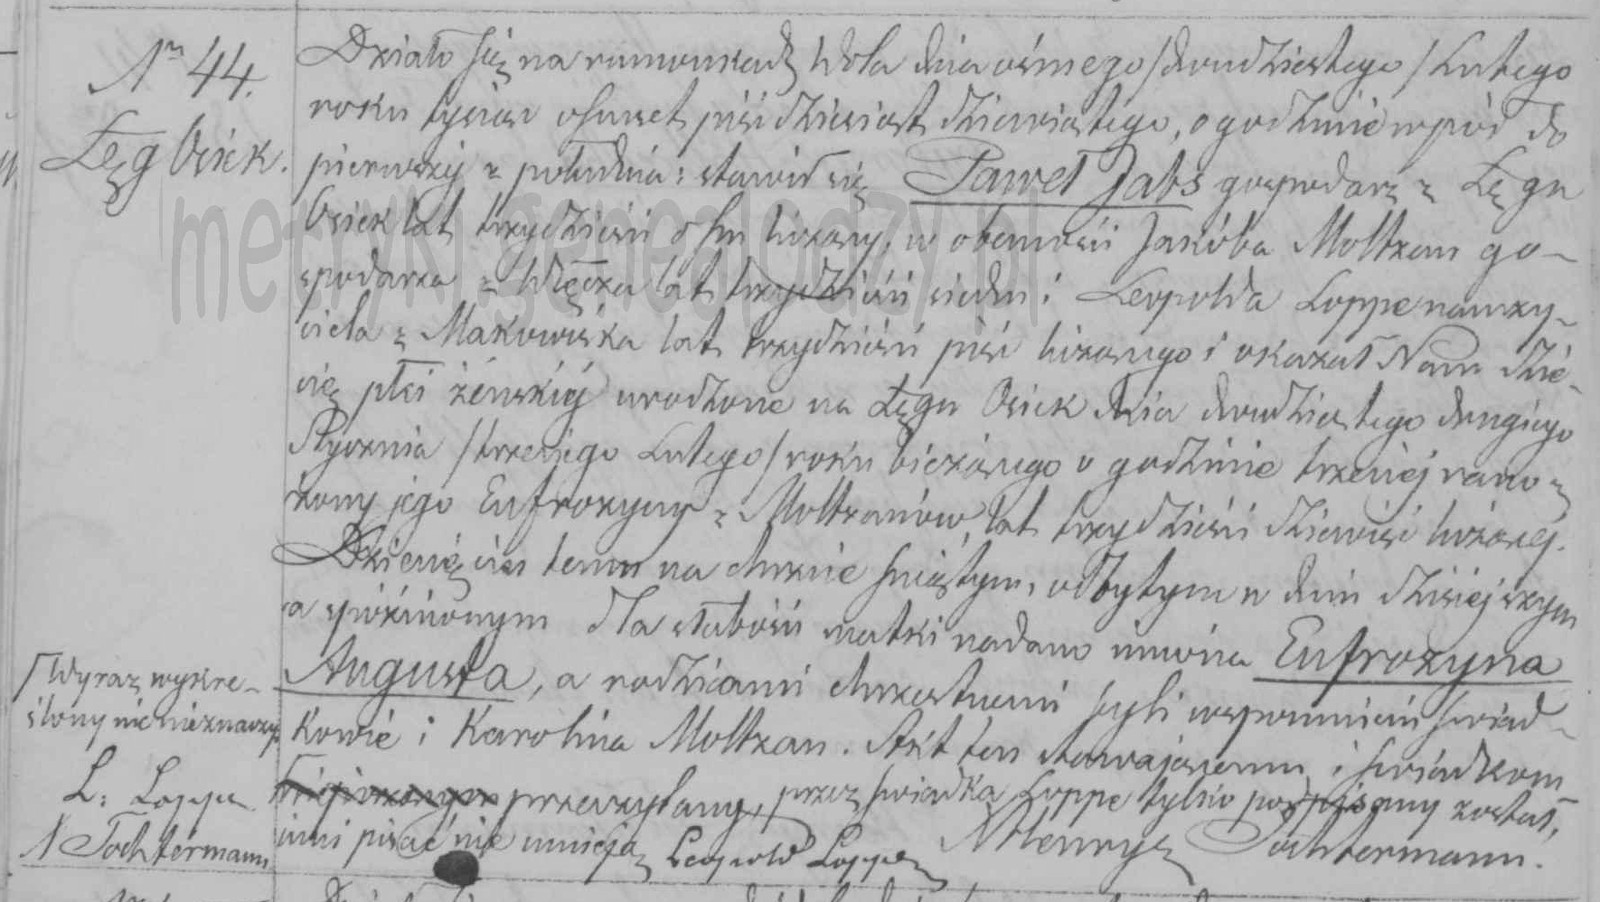 Nr 44.
Łęg Osiek.
Działo się na rumunkach Wola dnia ósmego /dwudziestego/ Lutego
roku tysiąc osmset pięśdziesiąt dziewiątego, o godzinie wpół do
pierwszej z południa: stawił się Paweł Jabs gospodarz z Łęgu
Osiek lat trzydzieści ośm liczący, w obecności Jakóba Moltzan go-
spodarza z Więcza lat trzydzieści siedm i Leopolda Loppe nauczy-
ciela z Makowiska lat trzydzieści pięć liczącego i okazał Nam dzie-
cię płci żeńskiéj urodzone na Łęgu Osiek dnia dwudziestego drugiego
Stycznia /trzeciego Lutego/ roku bieżącego o godzinie trzeciej rano z
żony jego Eufrozyny z Moltzanów, lat trzydzieści dziewięć liczącéj.
Dziecięciu temu na chrzcie świętym, odbytym w dniu dzisiejszym
a spóźnionym dla słabości matki nadano imiona Eufrozyna
Augusta, a rodzicami chrzestnemi byli wspomnieni świad-
kowie i Karolina Moltzan. Akt ten stawającemu i świadkom
przeczytany, przez świadka Loppe tylko podpisany został,
inni pisać nie umieją Leopold Loppe Henryk Tochtermann.
/Wyraz wykre-
ślony nic nieznaczy.
L: Loppe
Tochtermann
metryki.genealodzy.pl